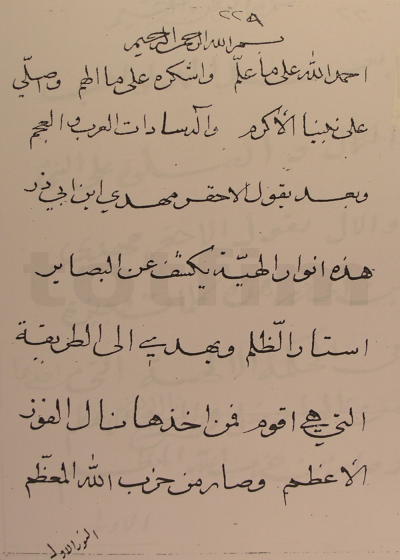 ٢٢٨
بسم الله الرحمن الرحيم
احمد الله على ما علّم واشكره على ما الهم وصلّي
على نبينا الأكرم وآله سادات العرب والعجم
وبعد يقول الاحقر مهدي ابن ابي ذر
هذه انوار الهيّة يكشف عن البصاير
استار الظلم ويهدي الى الطريقة
التي هي اقوم فمن اخذها نال الفوز
الأعظم وصار من حزب الله المعظّم
النور الاول